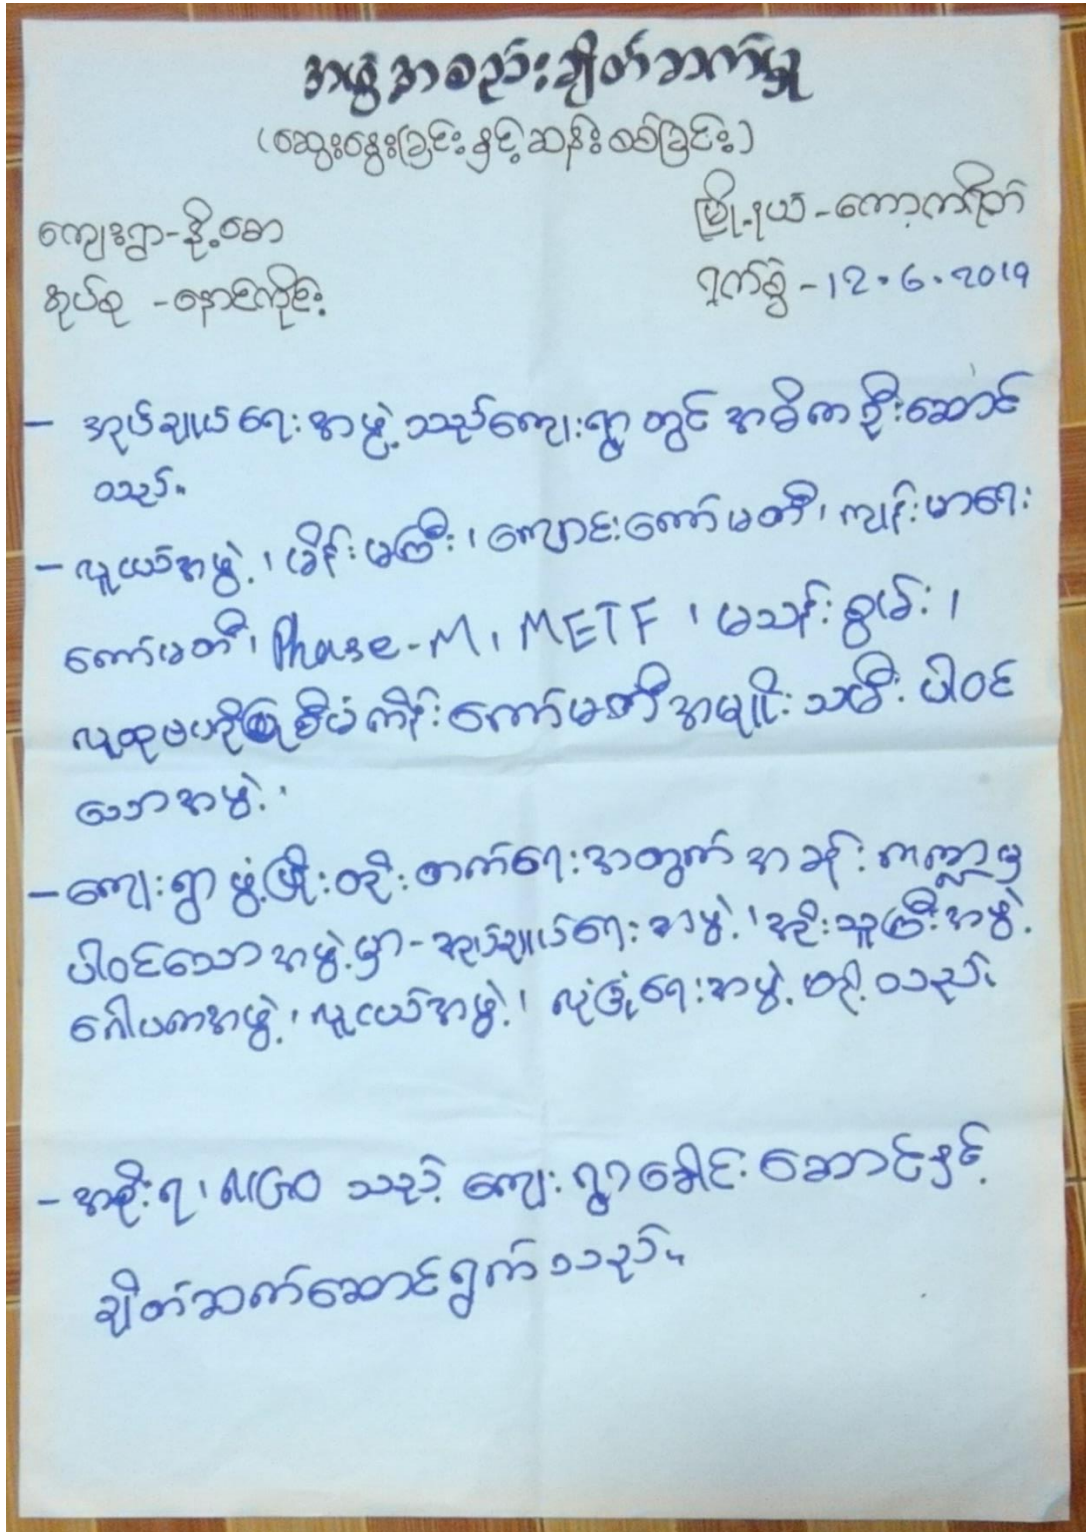 အဖွဲ့အစည်းချိတ်ဆက်မှု
(ဆွေးနွေးခြင်းနှင့်ဆန်းစစ်ခြင်း)
ကျေးရွာ-နို့ဝေော မြို့နယ်-ကော့ကရိတ်
အုပ်စု -နောင်ကိုင်း ရက်စွဲ-12.6.2019
- အုပ်ချုပ်ရေးအဖွဲ့သည်ကျေးရွာတွင် အဓိကဦးဆောင်
သည်။
- လူငယ်အဖွဲ့၊ မိန်းမကြီး၊ ကျောင်းကော်မတီ၊ ကျန်းမာရေး
ကော်မတီ၊ Phase-M၊ METF ၊ မသန်စွမ်း ၊
လူထုဗဟိုပြုစီမံကိန်းကော်မတီအမျိုးသမီး ပါဝင်
သောအဖွဲ့၊
- ကျေးရွာဖွံ့ဖြိုးတိုးတက်ရေးအတွက် အခန်းကဏ္ဍမှ
ပါဝင်သောအဖွဲ့မှာ-အုပ်ချုပ်ရေးအဖွဲ့၊ အိုးသူကြီးအဖွဲ့
ဂေါပကအဖွဲ့၊ လူငယ်အဖွဲ့၊ လုံခြုံရေးအဖွဲ့တို့သည်
- အစိုးရ၊ NGO သည် ကျေးရွာခေါင်းဆောင်နှင့်
ချိတ်ဆက်ဆောင်ရွက်သည်။